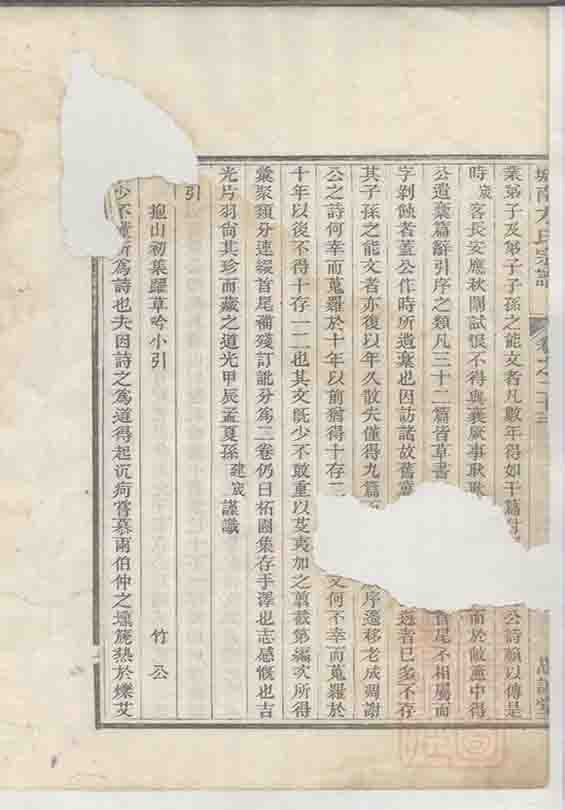 城南方氏宗譜 卷之二十三
業弟子及弟子子孫之能文者凡數年得如干篇 公詩賴以傳是
時宬客長安應秋闈試恨不得與襄厥事耿耿 而於敝簏中得
公遺稾篇辭引序之類凡三十二篇皆草書 首尾不相屬而
字剥蝕者蓋公作時所遺棄也因訪諸故舊 逸者已多不存
其子孫之能文者亦復以年久散失僅得九篇 序遷移老成凋謝
公之詩何幸而蒐羅於十年以前猶得十存二 又何不幸而蒐羅於
十年以後不得十存一二也其文旣少不敢重以芟夷加之翦截第編次所得
彙聚類分連綴首尾補殘訂訛分爲二卷仍曰柘園集存手澤也志感慨也吉
光片羽尙其珍而藏之道光甲辰孟夏孫建宬謹識
引
抱山初集躍草吟小引 竹公
少不 所爲詩也夫因詩之爲道得起沉疴嘗慕兩伯仲之壎篪熱於爍艾